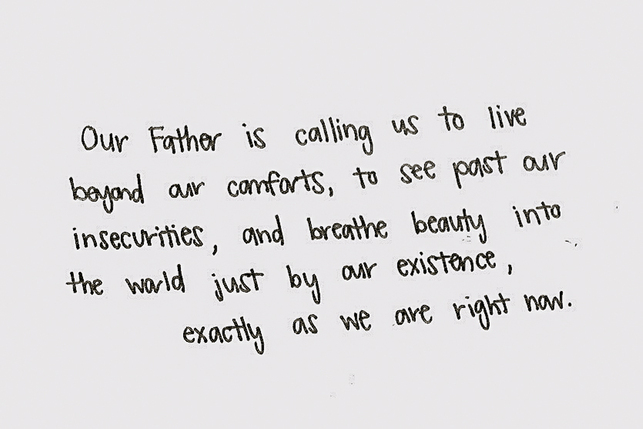 Our Father is calling us to live
beyond our comforts, to see past our
insecurities, and breathe beauty into
the world just by our existence,
exactly as we are right now.